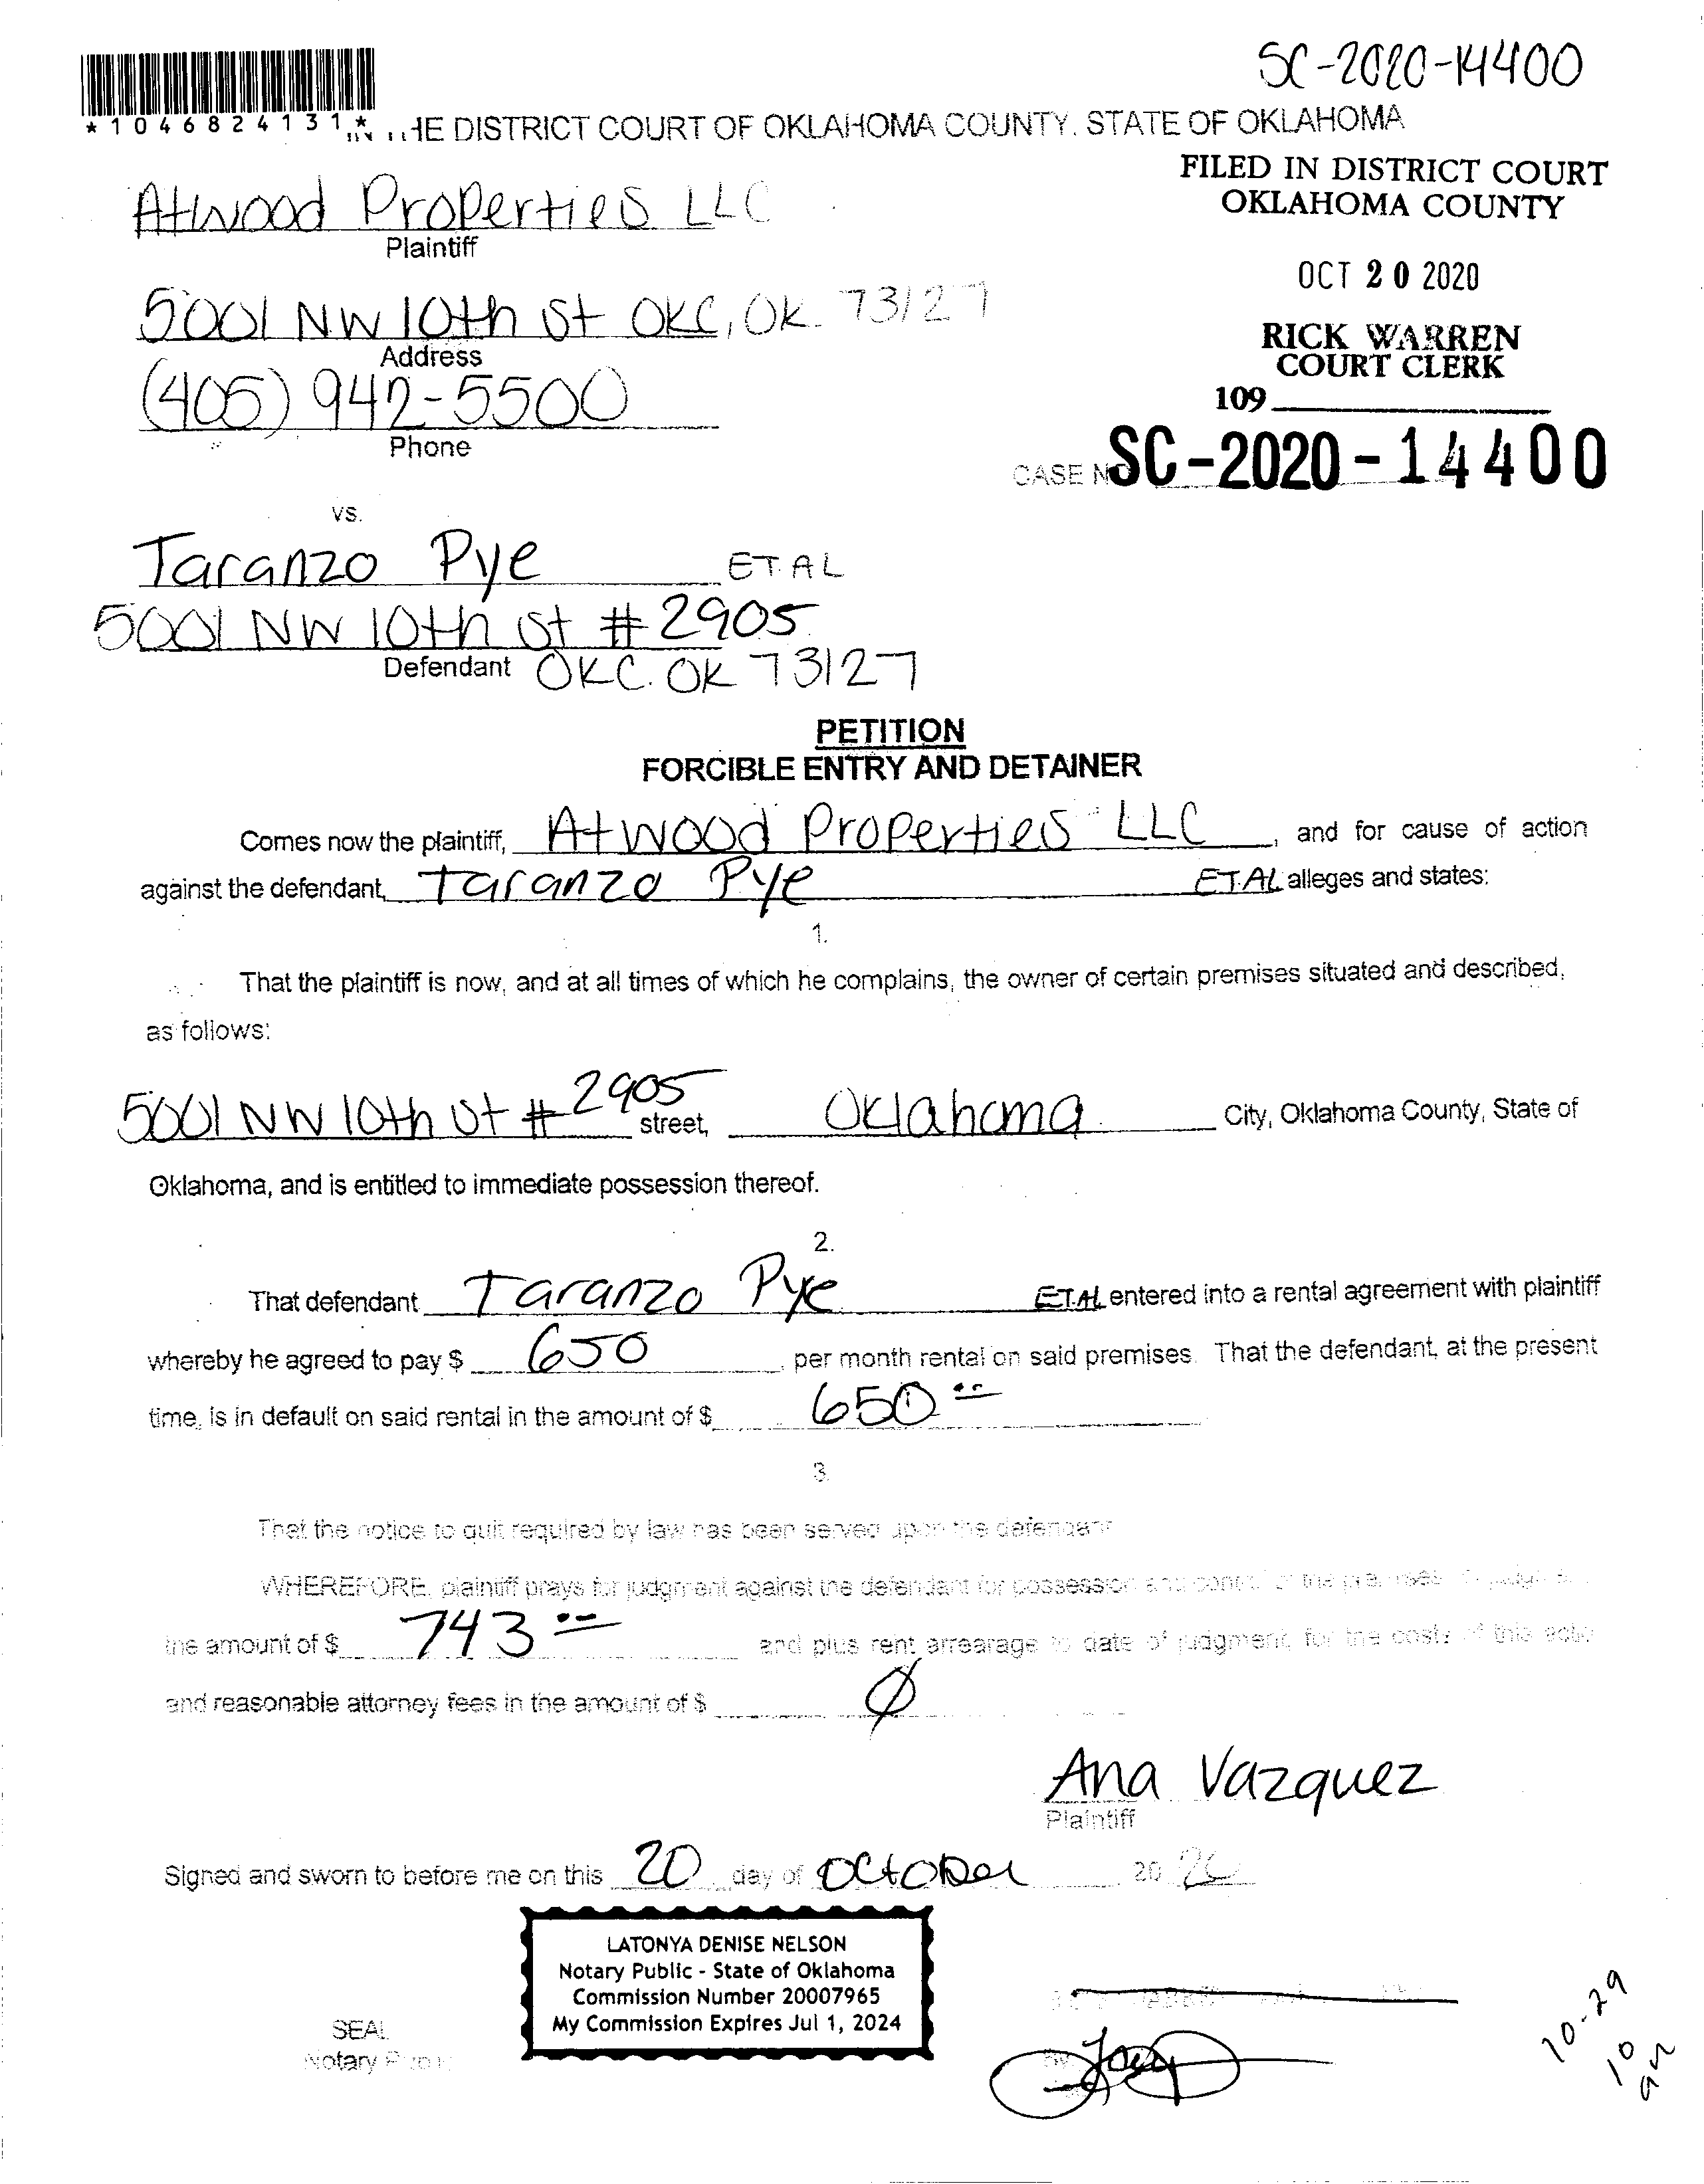 SC-2020-14400
*1046824131*
HE DISTRICT COURT OF OKLAHOMA COUNTY, STATE OF OKLAHOMA
FILED IN DISTRICT COURT
OKLAHOMA COUNTY
Atwood Properties LLC
Plaintiff
OCT 20 2020
5001 NW 10th St OKC, OK. 73127
Address
RICK WARREN
COURT CLERK
(405) 942-5500
109
Phone
CASE NO SC-2020-14400
vs.
Taranzo Pye ET. AL
5001 NW 10th St # 2905
Defendant OKC. OK 73127
PETITION
FORCIBLE ENTRY AND DETAINER
Comes now the plaintiff, Atwood Properties LLC, and for cause of action
against the defendant, Taranzo Pye ET.AL alleges and states:
1.
That the plaintiff is now, and at all times of which he complains, the owner of certain premises situated and described,
as follows:
5001 NW 10th St # 2905 street, Oklahoma City, Oklahoma County, State of
Oklahoma, and is entitled to immediate possession thereof.
2.
That defendant Taranzo Pye ET.AL entered into a rental agreement with plaintiff
whereby he agreed to pay $ 650, per month rental on said premises. That the defendant, at the present
time, is in default on said rental in the amount of $ 650.--
3.
That the notice to quit required by law has been served upon the defendant
WHEREFORE, plaintiff prays for judgment against the defendant for possession and control of the premises
the amount of $ 743.-- and plus rent arrearage to date of judgment, for the costs of this action
and reasonable attorney fees in the amount of $ Ø
Ana Vazquez
Plaintiff
Signed and sworn to before me on this 20 day of October 2020
LATONYA DENISE NELSON
Notary Public - State of Oklahoma
Commission Number 20007965
My Commission Expires Jul 1, 2024
SEAL
Notary Public
By
10-29
10
am